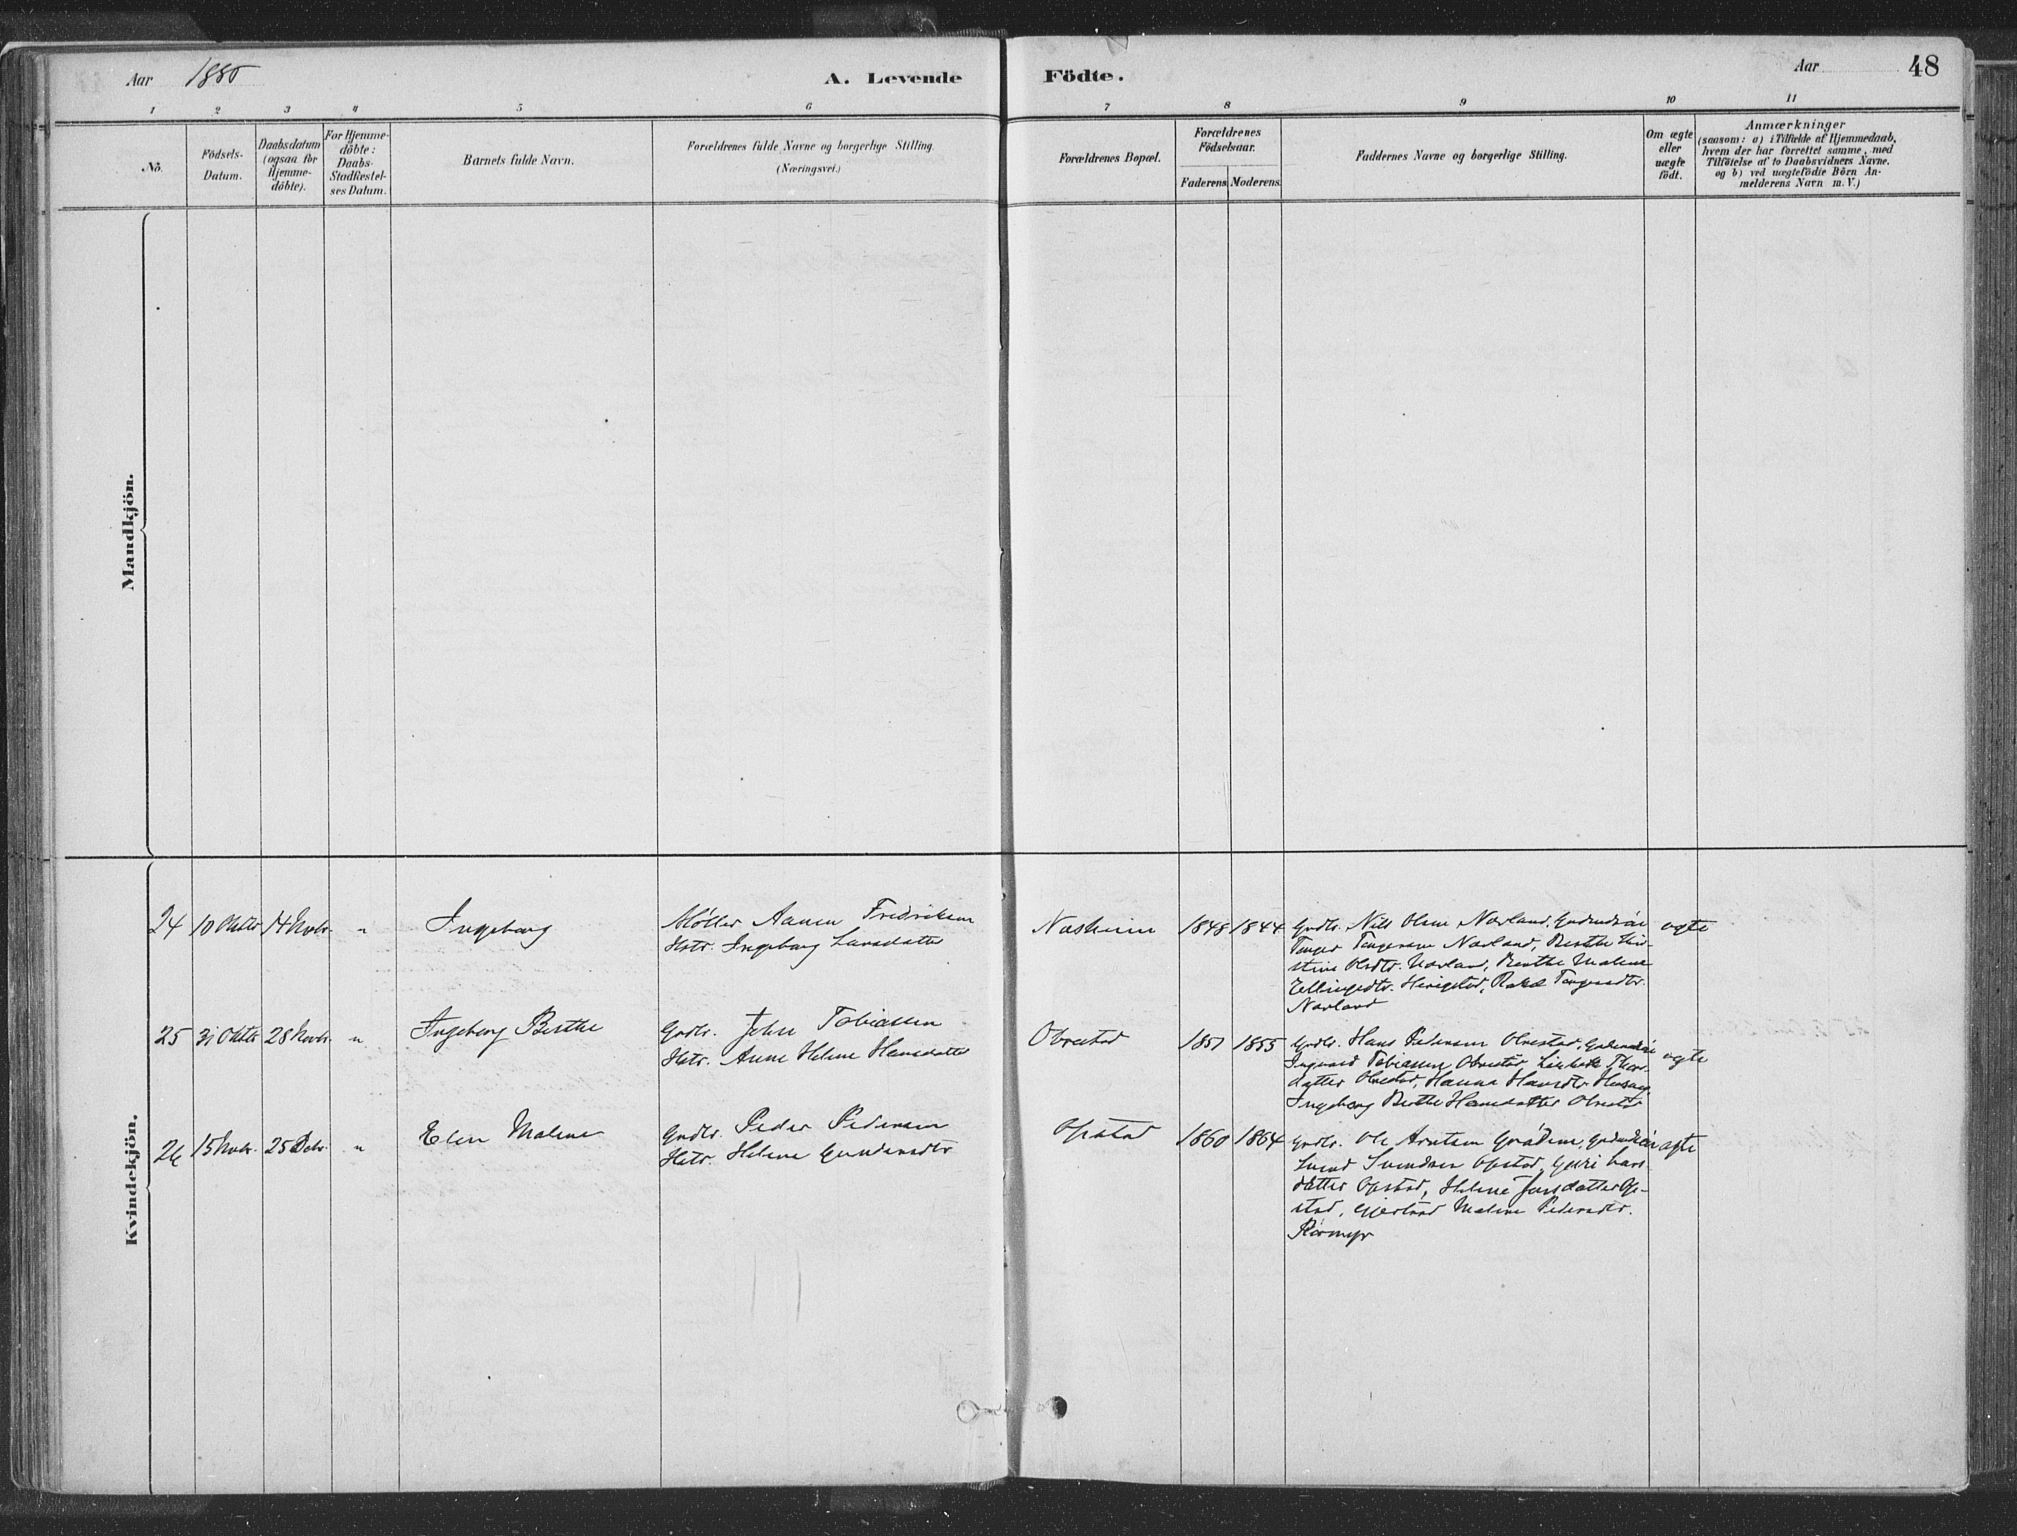 Aar 1885
A. Levende
Födte.
Aar
48
1 2 3 4 5 6 7 8 9 10 11
No.
Födsels-
Datum.
Daabsdatum
(ogsaa for
Hjemme-
döbte).
For Hjemme-
döbte:
Daabs-
Stadfestel-
ses Datum.
Barnets fulde Navn.
Forældrenes fulde Navne og borgerlige Stilling.
(Næringsvei.)
Forældrenes Bopæl.
Forældrenes
Födselsaar.
Faderens Moderens.
Faddernes Navne og borgerlige Stilling.
Om ægte
eller
uægte
födt.
Anmærkninger
(saasom: a) i Tilfælde af Hjemmedaab,
hvem der har forrettet samme, med
Tilföielse af to Daabsvidners Navne.
og b) ved uægtefödte Börn An-
melderens Navn m. V.)
Mandkjön.
Kvindekjön.
24 10 Oktbr 14 Novbr. " Ingeborg
Møller Aanen Fredriksen
Hstr. Ingeborg Larsdatter
Næsheim 1848 1844
Grdbr. Nils Olsen Nærland,
Tønges Tøngesen Nærland, Berthe Kir-
stine Olsdtr. Nærland, Berthe Malene
Ellingsdtr. Herigstad, Rakel Tøngesdtr.
Nærland
ægte
25 31 Oktbr 28 Novbr. " Ingeborg Berthe
Grdbr. John Tobiassen
Hstr. Anne Helene Hansdatter
Obrestad 1857 1855
Grdbr. Hans Pedersen Obrestad,
Ingvald Tobiassen Obrestad, Lisbeth
datter Obrestad, Hanna Hansdtr
Ingeborg Berthe Hansdatter Obrestad
ægte
26 15 Novbr. 25 Debr. " Elen Malene
Grdbr. Peder Pedersen
Hstr. Helene Gundersdtr
Opstad 1860 1864
Grdbr. Ole Arntsen
Svend Svendsen Opstad, Guri Lars-
datter Opstad, Helene Jonsdatter Op-
stad, Malene Pedersdtr.
ægte